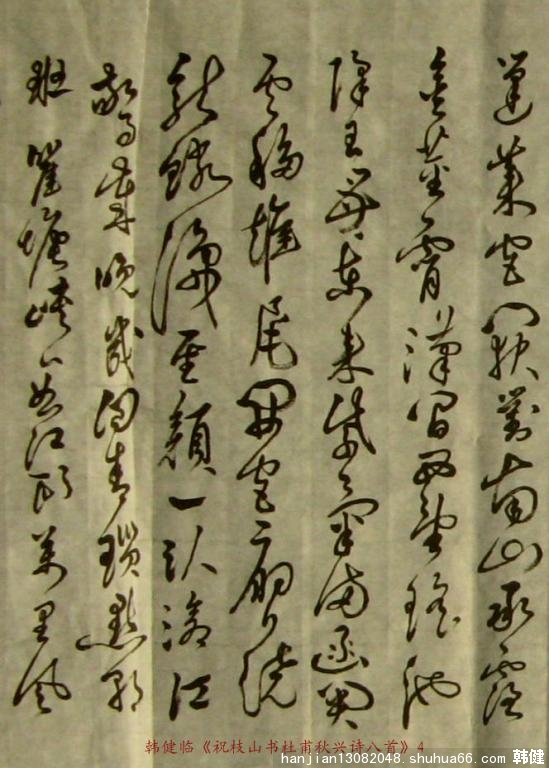 蓬萊宮闕對南山承露
金莖霄漢間西望瑤池
降王母東來紫氣滿函關
雲移雉尾開宮扇日繞
龍鱗識聖顏一臥滄江
驚歲晚幾回青瑣點朝
班 瞿塘峽口曲江頭萬里風
韩健临《祝枝山书杜甫秋兴诗八首》4
hanjian13082048.shuhua66.com 韩健